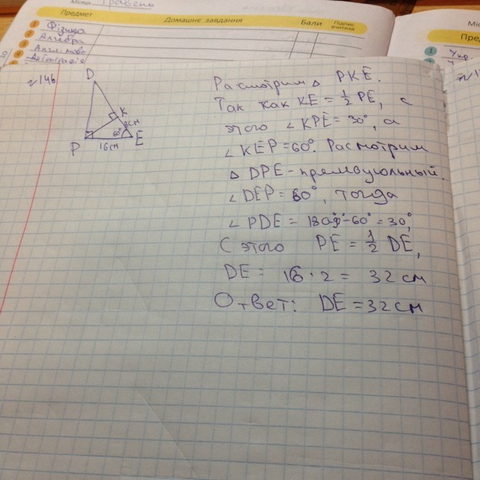 Предмет
Домашнє завдання
Бали
Підпис вчителя
Фізика
Алгебра
1
2
3
4
n146
D
K
8см
60°
P
16см
E
Расмотрим △ PKE.
Так как KE = 1/2 PE, с
этого ∠ KPE = 30°, а
∠ KEP = 60°. Расмотрим
△ DPE - прямоугольный.
∠ DEP = 60°, тогда
∠ PDE = 180°-60° = 30°,
С этого PE = 1/2 DE,
DE = 16 · 2 = 32 см
Ответ: DE = 32 см